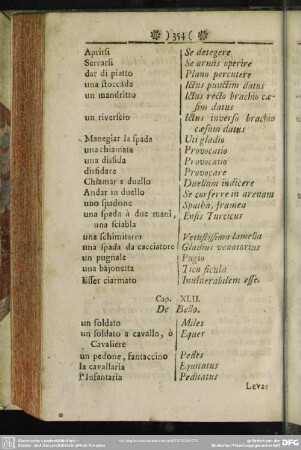 ) 354 (
Aprirsi Se detegere
Serrarsi Se armis operire
dar di piatto Plano percutere
una stoccada Ictus punctim datus
un mandritto Ictus recto brachio cæ-
sim datus
un riverscio Ictus inverso brachio
cæsum datus
Manegiar la spada Uti gladio
una chiamata Provocatio
una disfida Provocatio
disfidare Provocare
Chiamar a duello Duellum indicere
Andar in duello Se conferre in arenam
uno spadone Spatha, framea
una spada à due mani, Ensis Turcicus
una sciabla
una schimitarra Vetustissima lamella
una spada da cacciatore Gladius venatorius
un pugnale Pugio
una bajonetta Sica
Esser ciarmato Invulnerabilem esse.
Cap. XLII.
De Bello.
un soldato Miles
un soldato a cavallo, ò Eques
Cavaliere
un pedone, fantaccino Pedes
la cavallaria Equitatus
l'Infantaria Peditatus
Levar